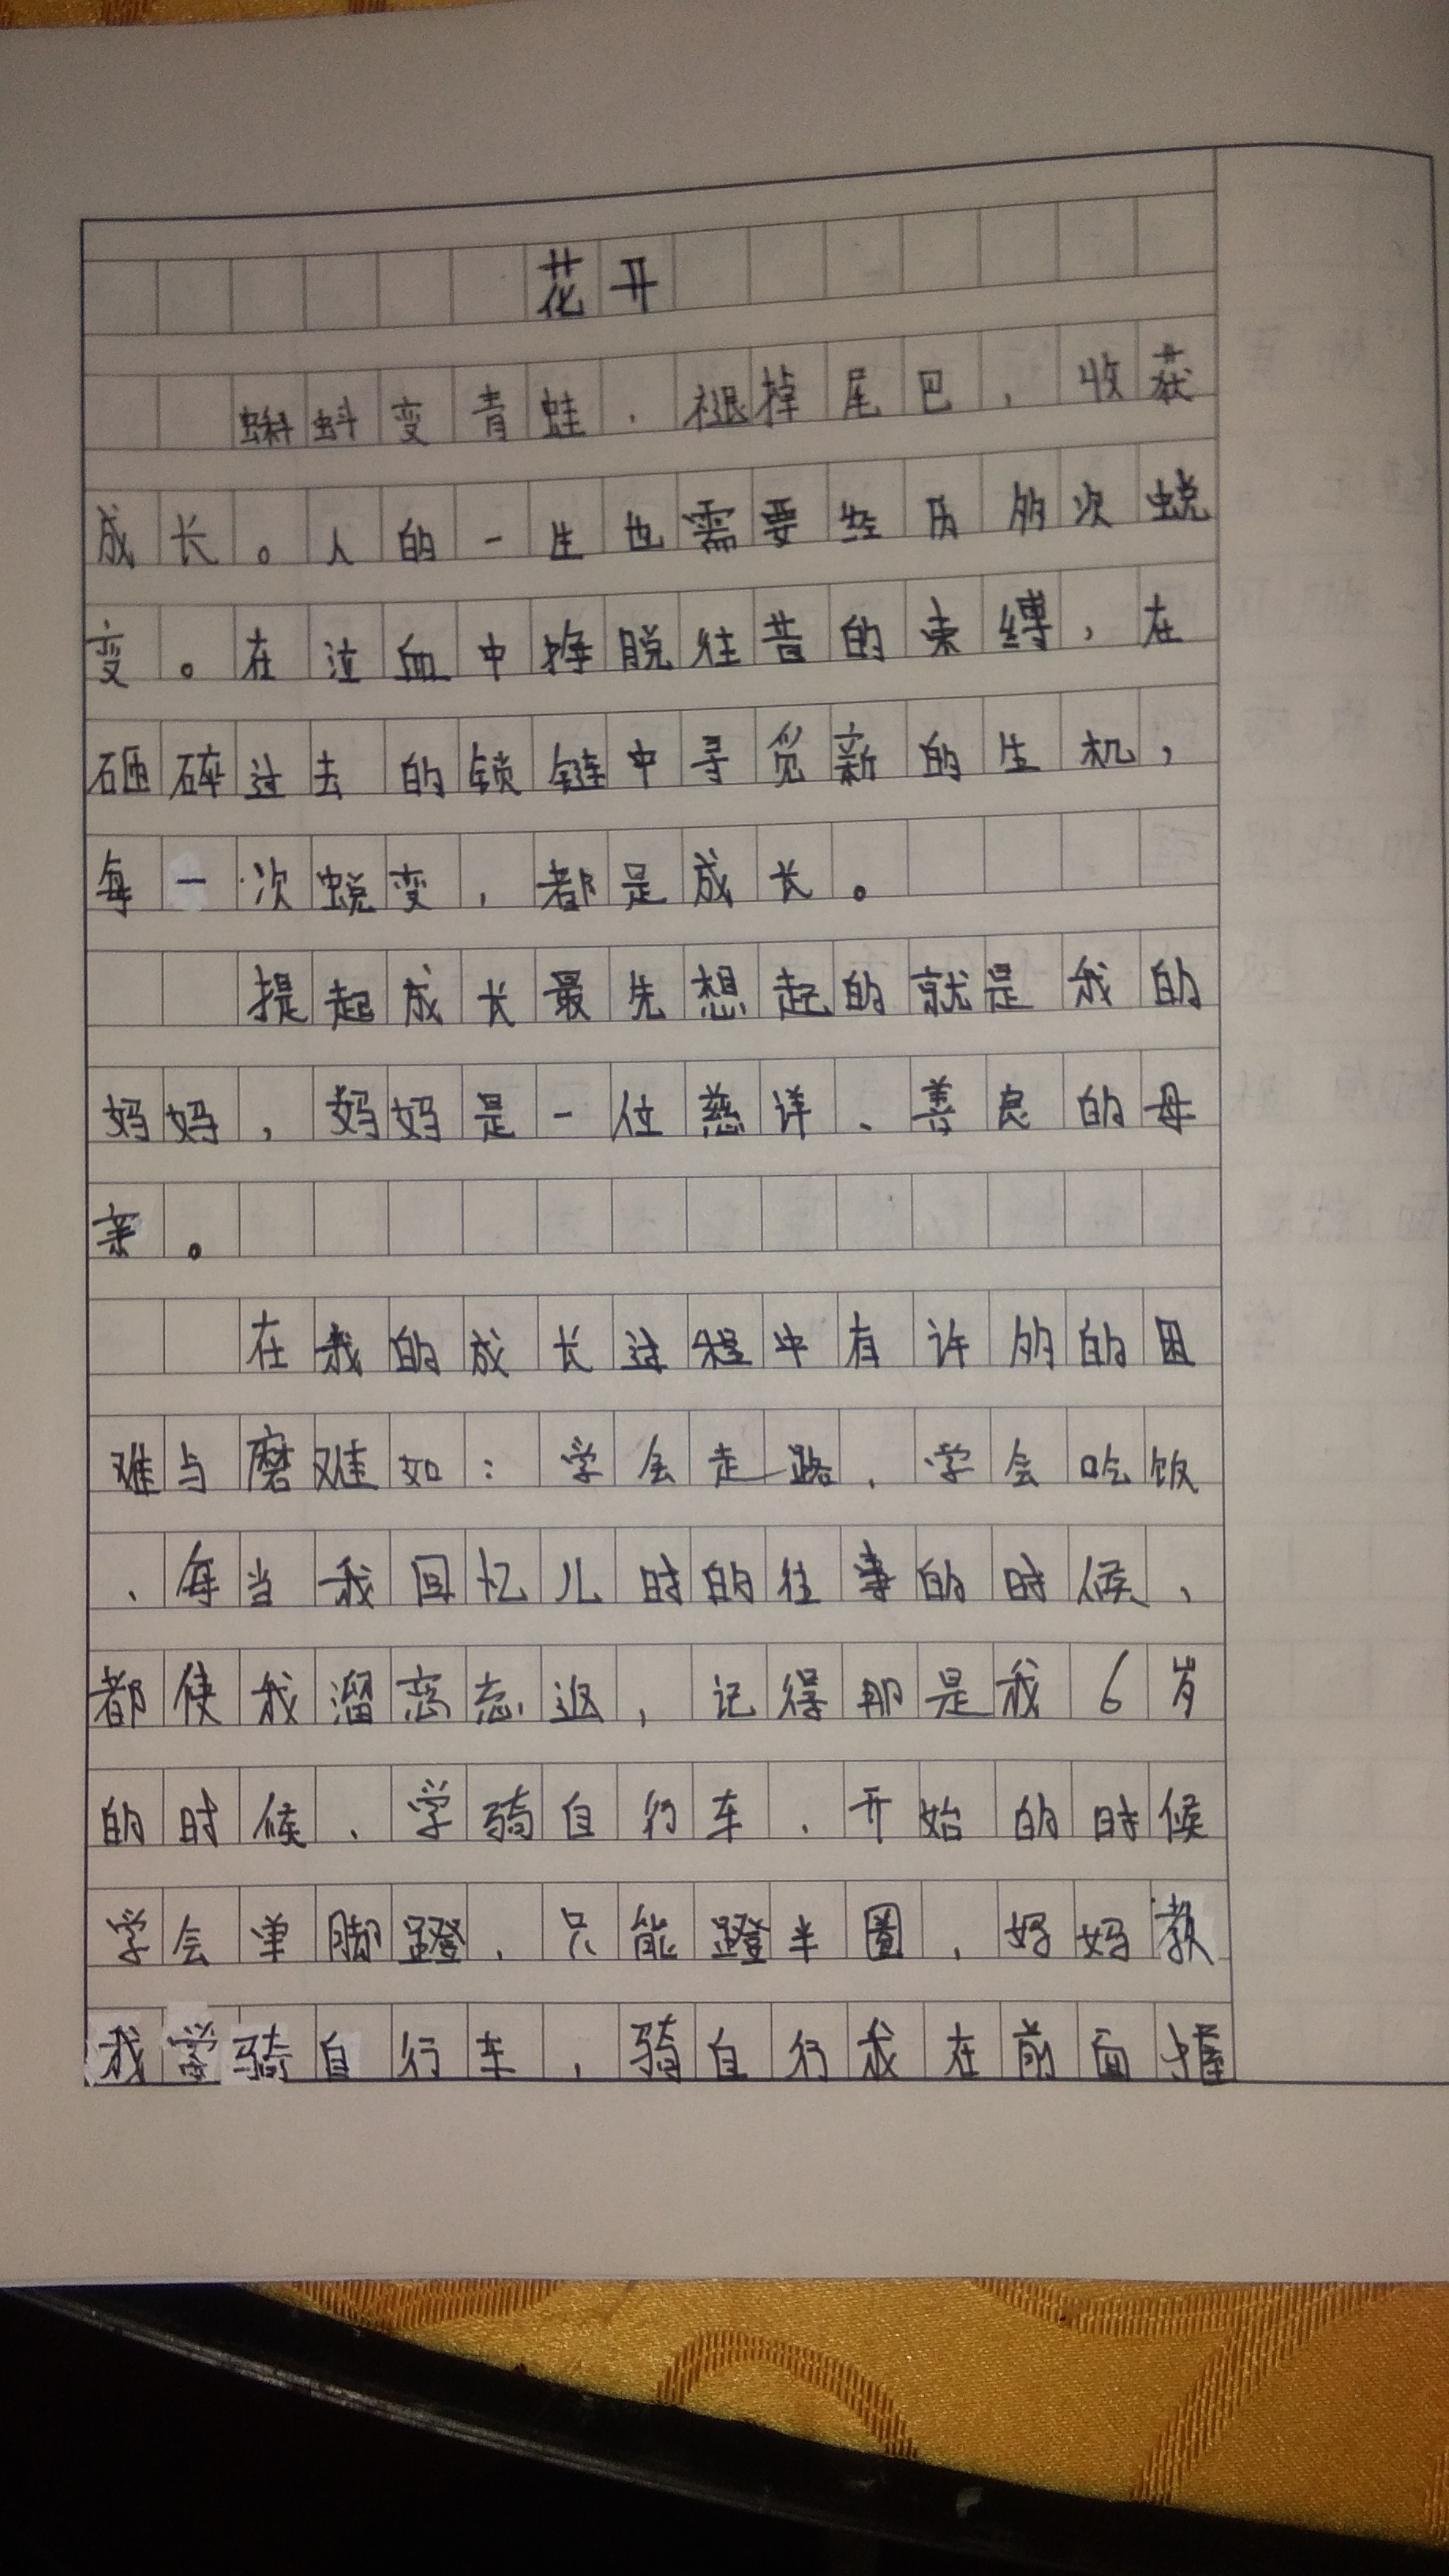 花开
蝌蚪变青蛙，褪掉尾巴，收获
成长。人的一生也需要经历多次蜕
变。在泣血中挣脱往昔的束缚，在
砸碎过去的锁链中寻觅新的生机，
每一次蜕变，都是成长。
提起成长最先想起的就是我的
妈妈，妈妈是一位慈详、善良的母
亲。
在我的成长过程中有许多的困
难与磨难如：学会走路、学会吃饭
、每当我回忆儿时的往事的时候，
都使我溜恋忘返，记得那是我6岁
的时候、学骑自行车、开始的时候
学会单脚蹬、只能蹬半圈，妈妈教
我学骑自行车，骑自行我在前面握